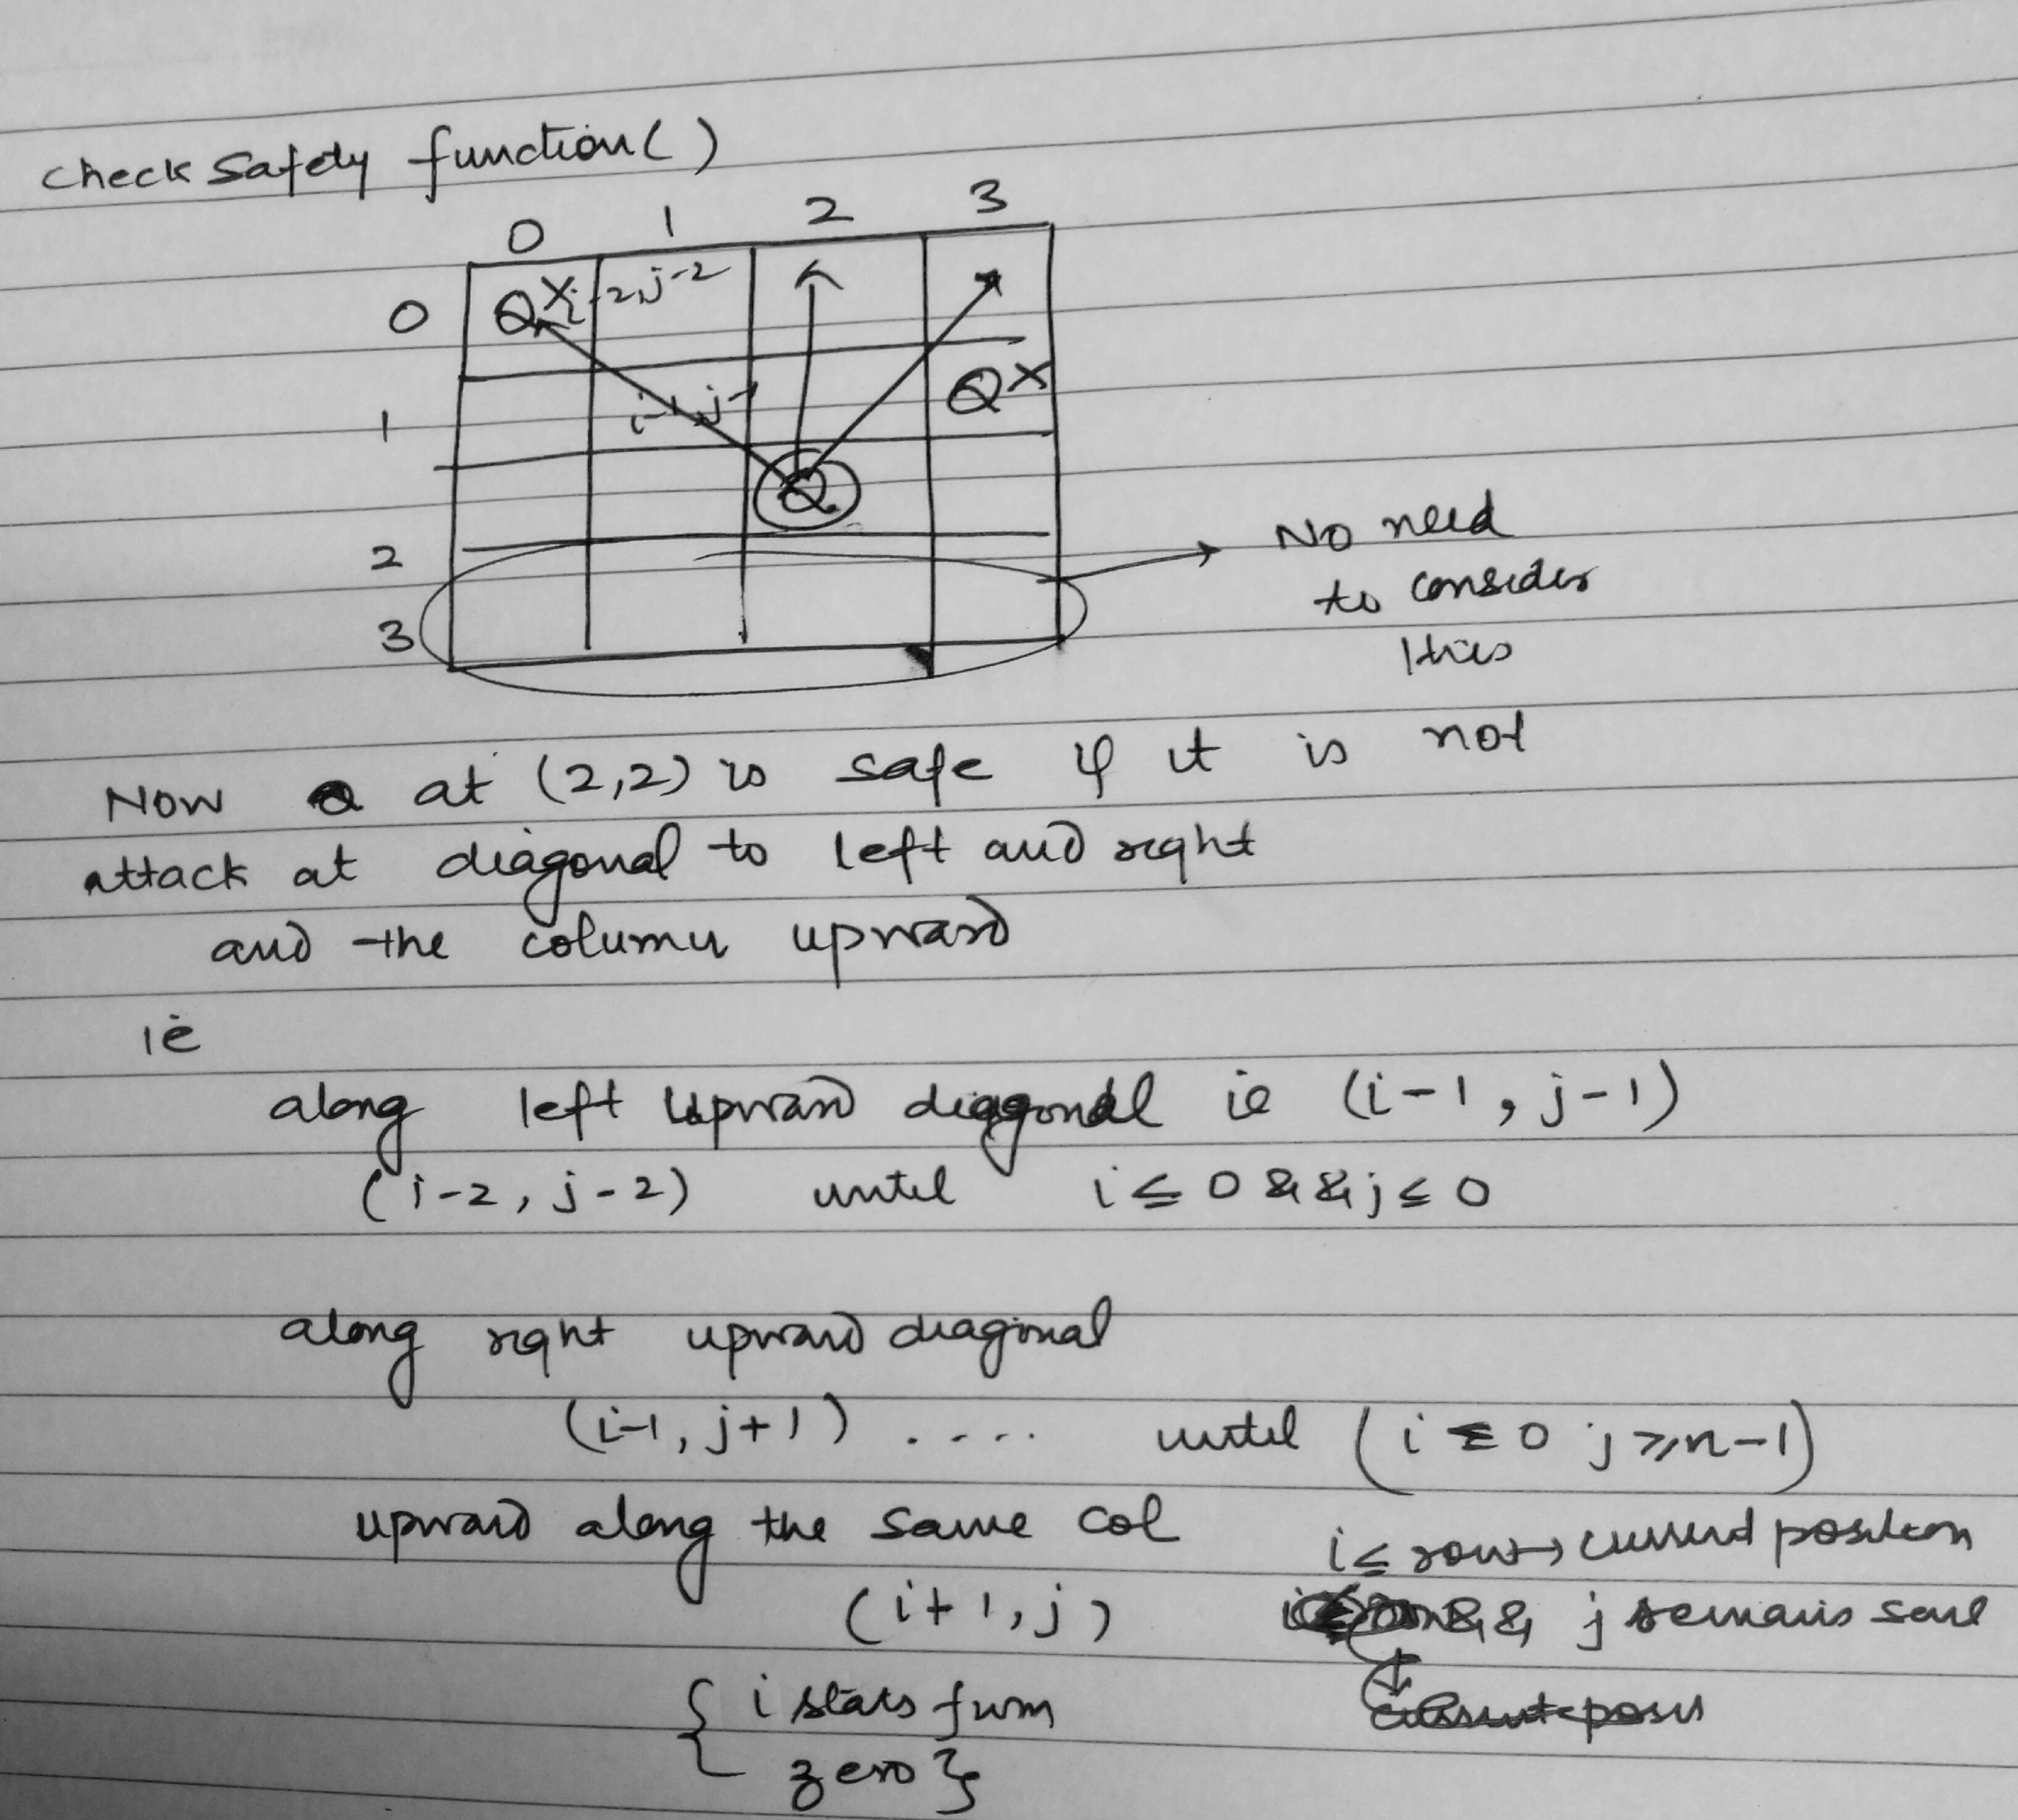 check Safety function()
0 1 2 3
0 Q X i-2,j-2
1 i-1,j-1 Q X
Q
2
3
No need
to consider
this
Now Q at (2,2) is safe if it is not
attack at diagonal to left and right
and the column upward
ie
along left upward diagonal ie (i-1, j-1)
(i-2, j-2) until i ≤ 0 && j ≤ 0
along right upward diagonal
(i-1, j+1) .... until (i ≤ 0 j ≥ n-1)
upward along the same col
i ≤ row → current position
(i+1, j) && j remains
{ i starts from
zero }